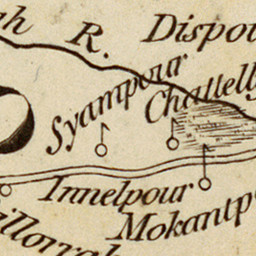 R. Dispou
Syampour
Chattelly
Innelpour
Mokantp
illorrah